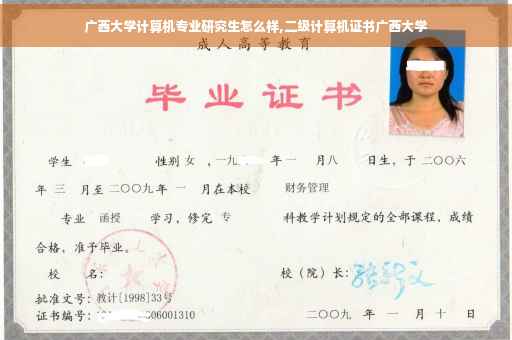 广西大学计算机专业研究生怎么样,二级计算机证书广西大学
成人高等教育
毕业证书
学生 性别 女 ，一九 年 一 月八 日生，于 二〇〇六
年 三 月至 二〇〇九 年 一 月在本校 财务管理
专业 函授 学习，修完 专 科教学计划规定的全部课程，成绩
合格，准予毕业。
校 名： 校（院）长：
批准文号：教计[1998]33号
证书编号： 06001310 二〇〇九 年 一 月 十 日